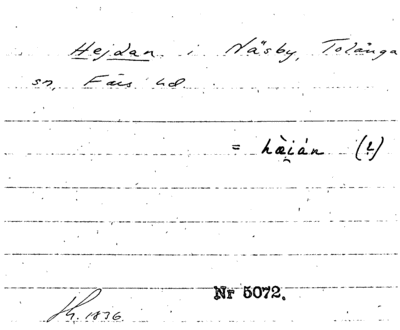 Hejdan i Näsby, Tolånga
sn, Färs hd
= hæ̀ián (!)
Nr 5072.
1876